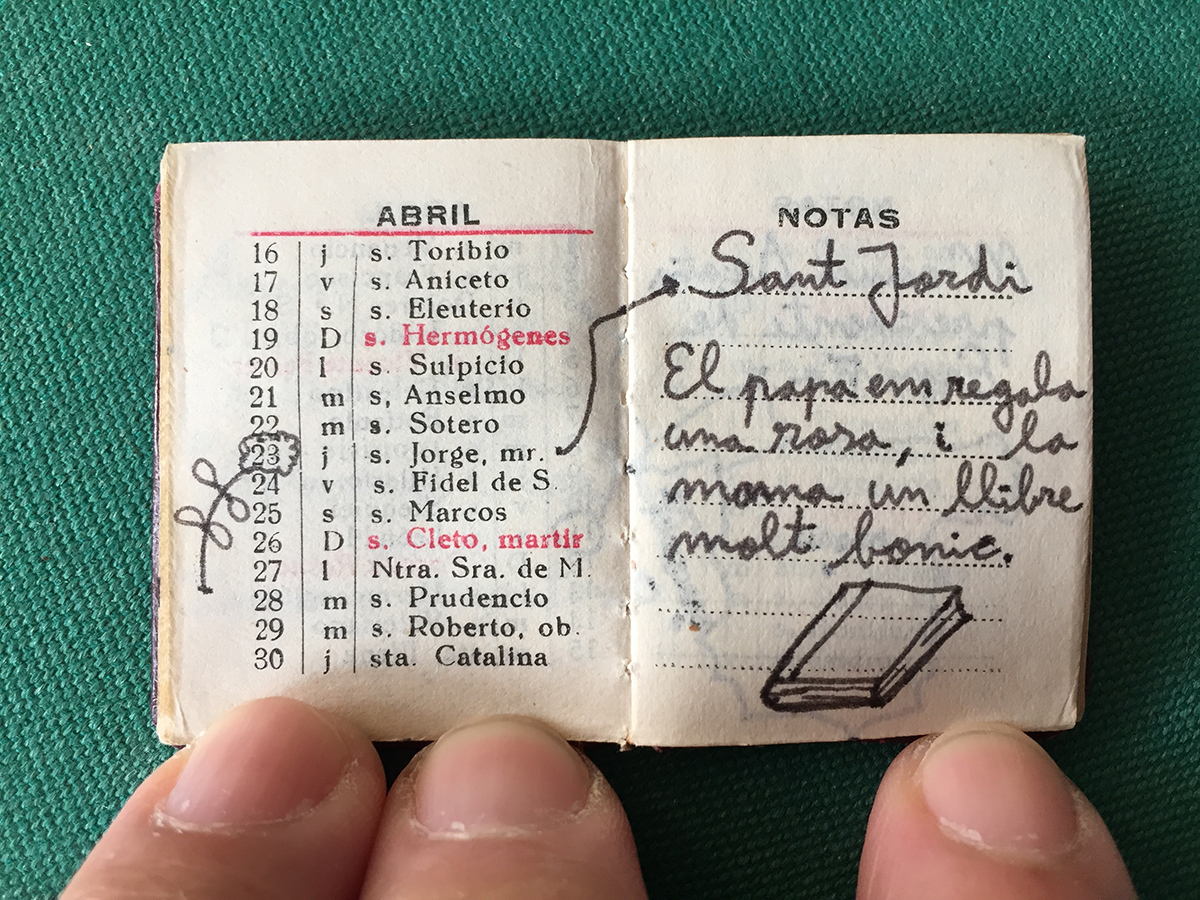 ABRIL
16 j s. Toribio
17 v s. Aniceto
18 s s. Eleuterio
19 D s. Hermógenes
20 l s. Sulpicio
21 m s, Anselmo
22 m s. Sotero
23 j s. Jorge, mr.
24 v s. Fidel de S.
25 s s. Marcos
26 D s. Cleto, martir
27 l Ntra. Sra. de M.
28 m s. Prudencio
29 m s. Roberto, ob.
30 j sta. Catalina
NOTAS
Sant Jordi
El papa em regala
una rosa, i la
mama un llibre
molt bonic.